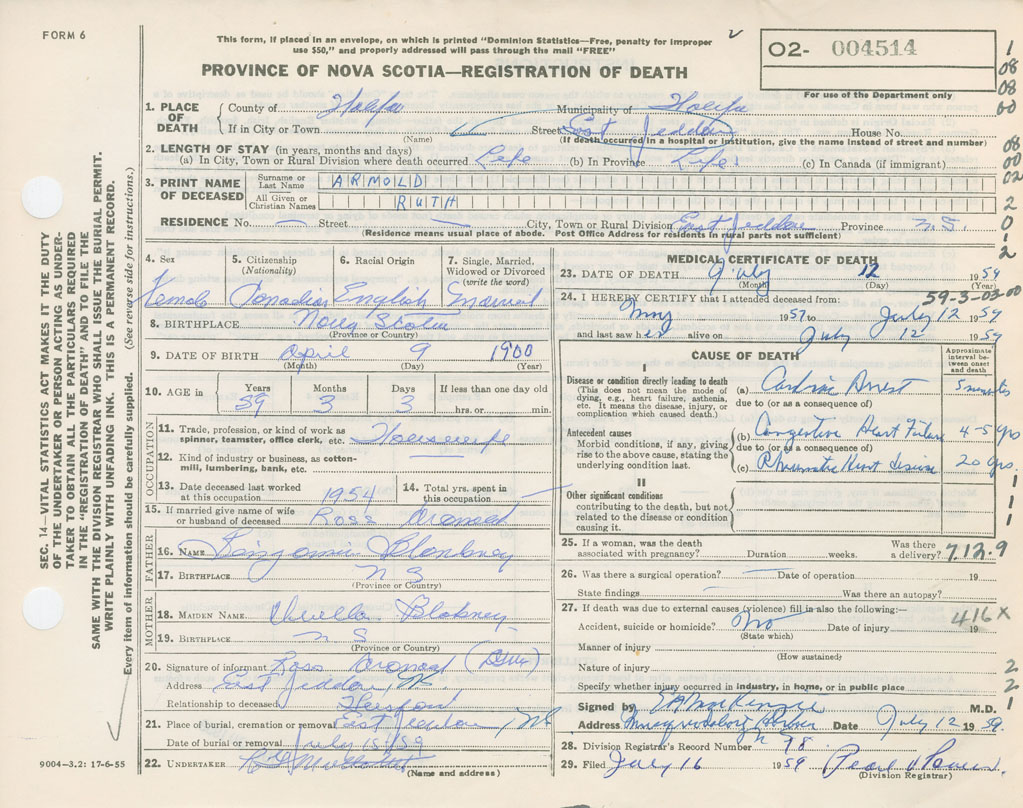 FORM 6
This form, if placed in an envelope, on which is printed "Dominion Statistics—Free, penalty for improper
use $50," and properly addressed will pass through the mail "FREE"
O2- 004514
For use of the Department only
PROVINCE OF NOVA SCOTIA—REGISTRATION OF DEATH
1
08
08
00
08
00
02
2
0
1
2
SEC. 14—VITAL STATISTICS ACT MAKES IT THE DUTY
OF THE UNDERTAKER OR PERSON ACTING AS UNDER-
TAKER TO OBTAIN ALL THE PARTICULARS REQUIRED
IN THE "REGISTRATION OF DEATH" AND TO FILE THE
SAME WITH THE DIVISION REGISTRAR WHO SHALL ISSUE THE BURIAL PERMIT.
WRITE PLAINLY WITH UNFADING INK. THIS IS A PERMANENT RECORD.
Every item of information should be carefully supplied. (See reverse side for instructions.)
1. PLACE OF DEATH County of Halifax Municipality of Halifax
If in City or Town Street East Jeddore House No.
(Name) (If death occurred in a hospital or institution, give the name instead of street and number)
2. LENGTH OF STAY (in years, months and days)
(a) In City, Town or Rural Division where death occurred Life (b) In Province Life (c) In Canada (if immigrant)
3. PRINT NAME OF DECEASED
Surname or Last Name ARNOLD
All Given or Christian Names RUTH
RESIDENCE No. — Street — City, Town or Rural Division East Jeddore Province N.S.
(Residence means usual place of abode. Post Office Address for residents in rural parts not sufficient)
4. Sex Female
5. Citizenship (Nationality) Canadian
6. Racial Origin English
7. Single, Married, Widowed or Divorced (write the word) Married
8. BIRTHPLACE Nova Scotia
(Province or Country)
9. DATE OF BIRTH April 9 1900
(Month) (Day) (Year)
10. AGE in Years 59 Months 3 Days 3 If less than one day old
hrs. or min.
OCCUPATION
11. Trade, profession, or kind of work as
spinner, teamster, office clerk, etc. Housewife
12. Kind of industry or business, as cotton-
mill, lumbering, bank, etc. —
13. Date deceased last worked
at this occupation 1954
14. Total yrs. spent in
this occupation —
15. If married give name of wife
or husband of deceased Ross Arnold
FATHER
16. NAME Blakney
17. BIRTHPLACE N S
(Province or Country)
MOTHER
18. MAIDEN NAME Blakney
19. BIRTHPLACE N S
(Province or Country)
20. Signature of informant Ross Arnold
Address East Jeddore, NS
Relationship to deceased Husband
21. Place of burial, cremation or removal East Jeddore, NS
Date of burial or removal July 15/59
22. UNDERTAKER
(Name and address)
9004—3.2: 17-6-55
MEDICAL CERTIFICATE OF DEATH
23. DATE OF DEATH July 12 1959
(Month) (Day) (Year)
24. I HEREBY CERTIFY that I attended deceased from: 59-3-03-00
May 1957 to July 12 1959
and last saw her alive on July 12 1959
CAUSE OF DEATH
Approximate interval between onset and death
I
Disease or condition directly leading to death
(This does not mean the mode of
dying, e.g., heart failure, asthenia,
etc. It means the disease, injury, or
complication which caused death.)
(a) Cardiac Arrest 5 minutes
due to (or as a consequence of)
Antecedent causes
Morbid conditions, if any, giving
rise to the above cause, stating the
underlying condition last.
(b) Congestive Heart Failure 4-5 yrs
due to (or as a consequence of)
(c) Rheumatic Heart Disease 20 yrs.
II
Other significant conditions
contributing to the death, but not
related to the disease or condition
causing it.
1
1
1
25. If a woman, was the death
associated with pregnancy? Duration weeks. Was there
a delivery?
712.9
26. Was there a surgical operation? — Date of operation 19
State findings — Was there an autopsy?
27. If death was due to external causes (violence) fill in also the following:—
416X
Accident, suicide or homicide? No Date of injury 19
(State which)
Manner of injury
(How sustained)
Nature of injury
2
Specify whether injury occurred in industry, in home, or in public place
2
Signed by M.D. 1
Address Musquodoboit Harbour Date July 12 1959.
28. Division Registrar's Record Number 98
29. Filed July 16 1959 Pearl
(Division Registrar)